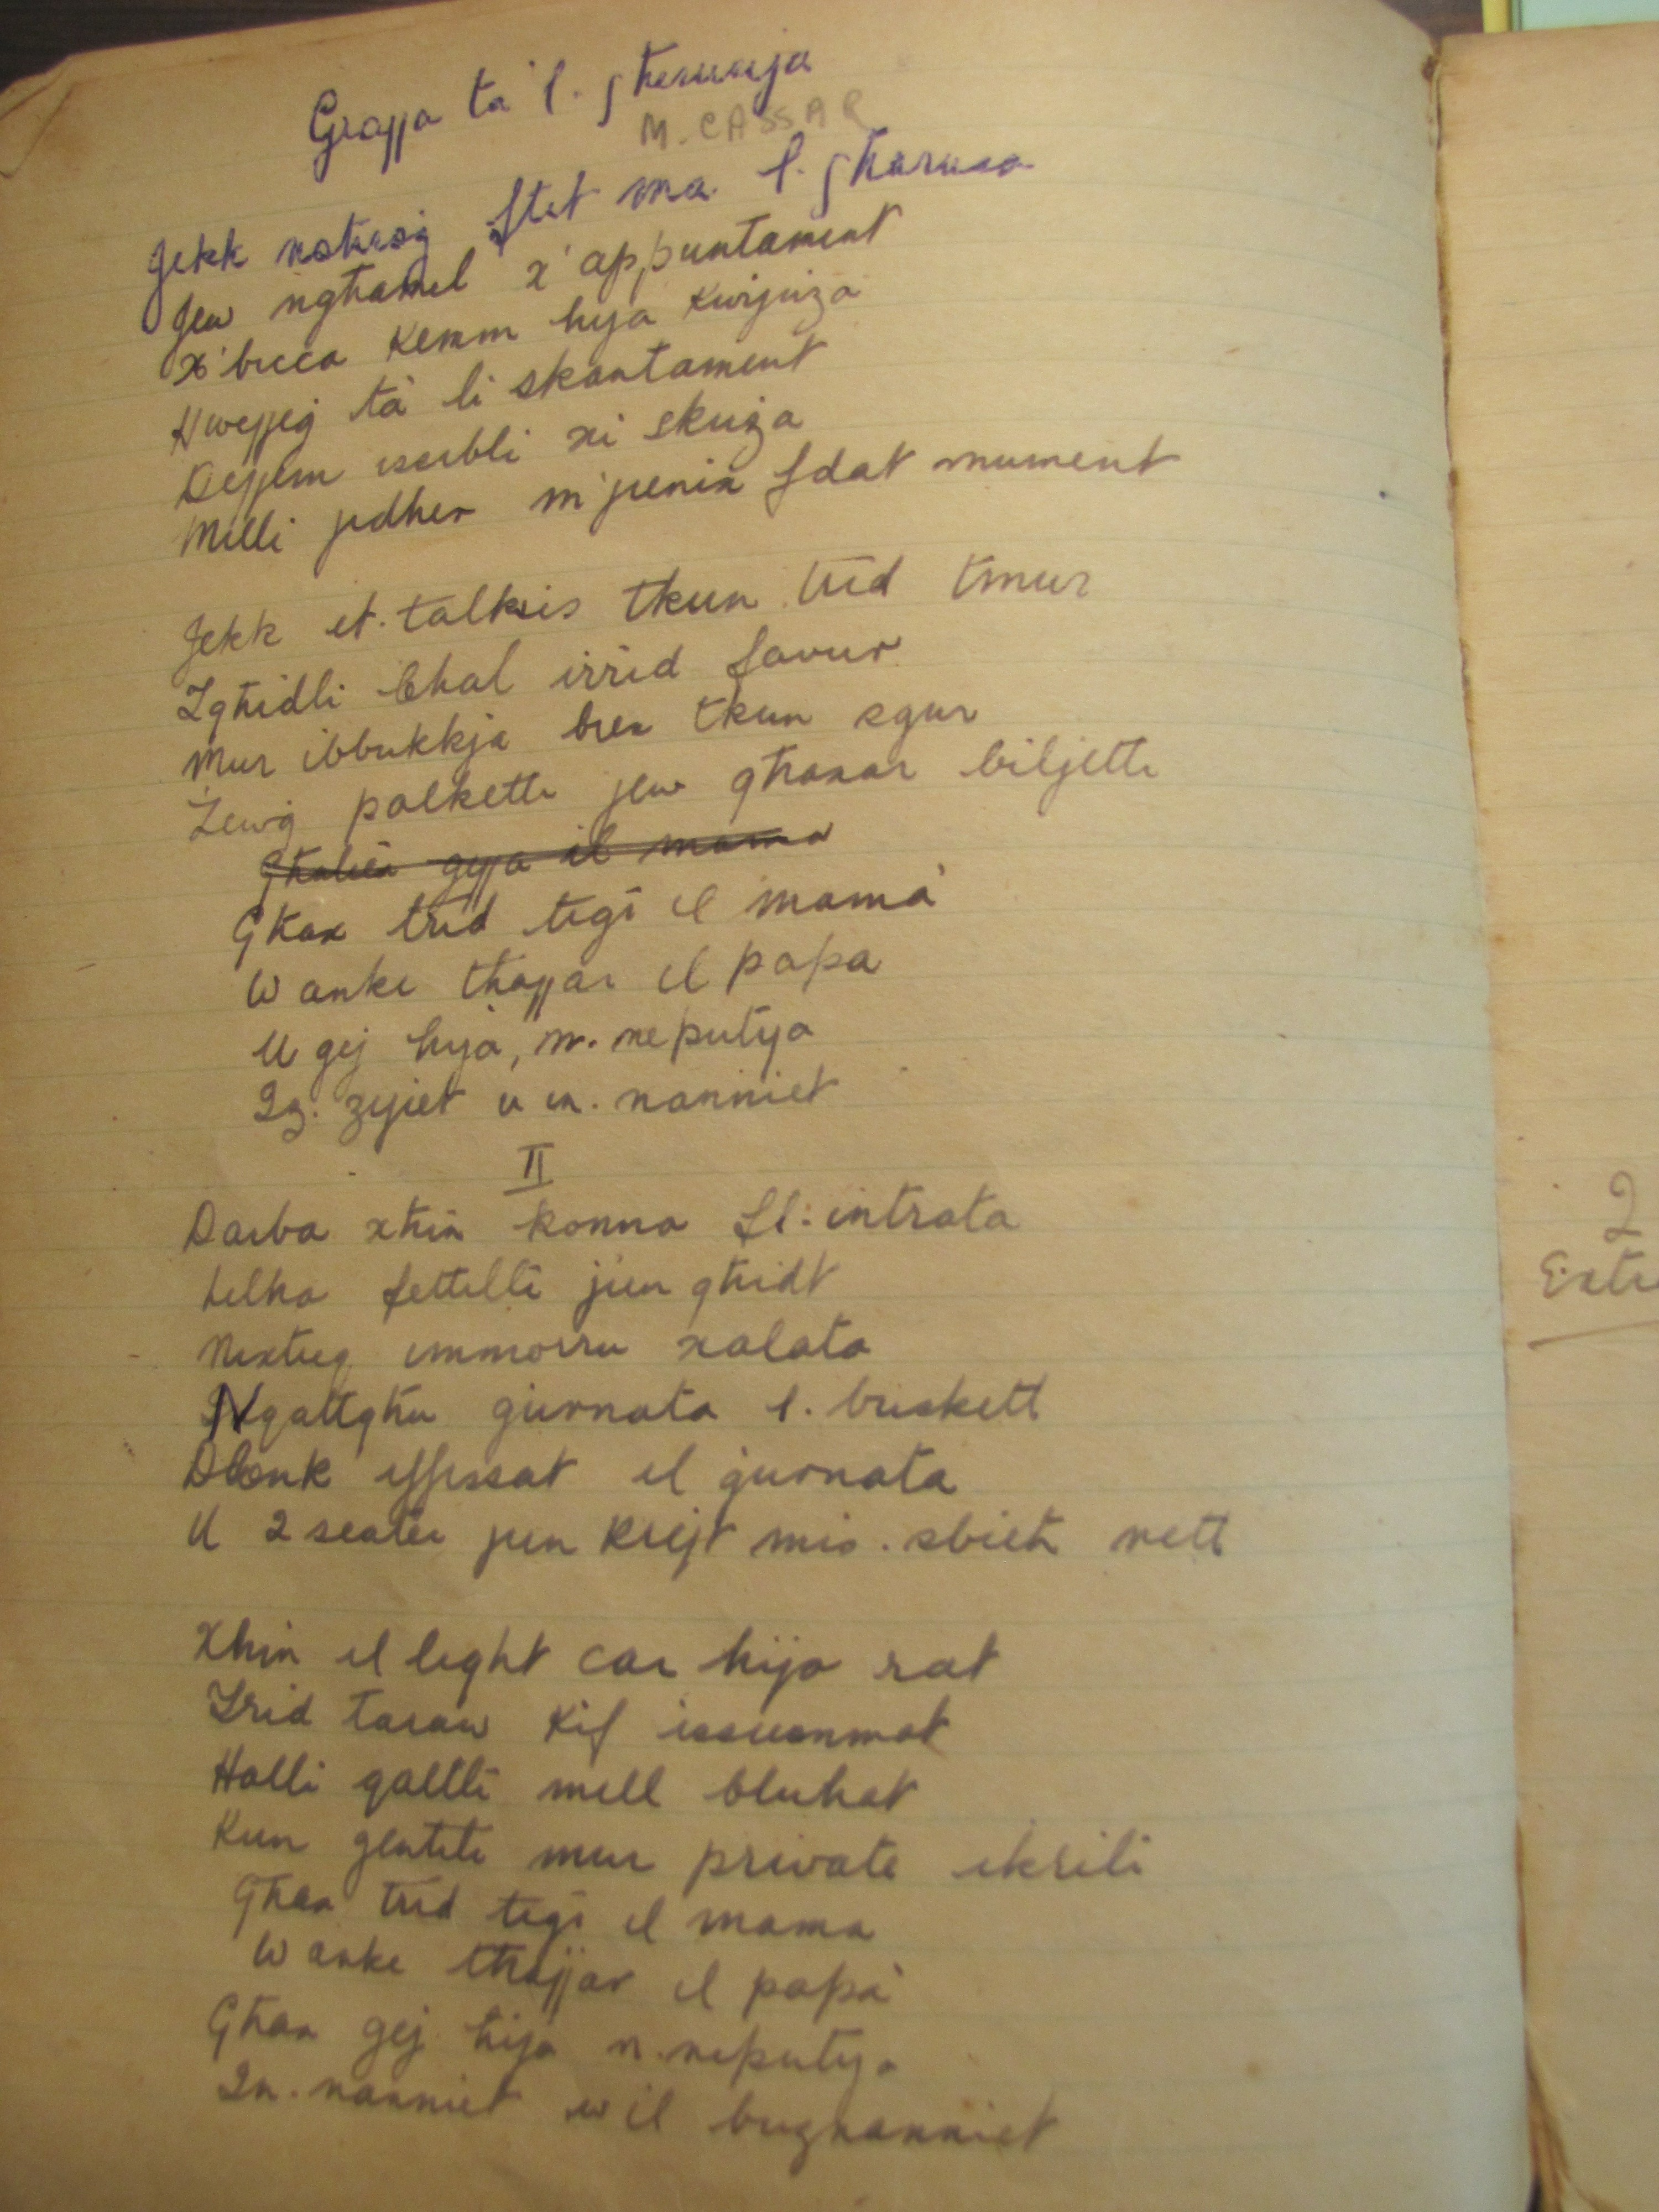 Grajja ta' l. għerusija
M. CASSAR
Jekk noħroġ ftit ma l. għarusa
Jew ngħamel x'appuntament
X'bicca kemm hija kurjuża
Hwejjeġ ta' li skantament
Dejjem issibli xi skuża
Milli jidher m'jienix fdat mument
Jekk it. talkis tkun trid tmur
Igħidli bħal irrid favur
Mur ibbukkja biex tkun sgur
Żewġ palketti jew għaxar biljetti
Għaliex ġejja il mama
Għax trid tiġi il mamà
W anke tħajjar il papa
U ġej ħija, n. neputija
Iz. zijiet u in. nanniet
II
Darba xħin konna fl. intrata
Lilha fettilli jien għidt
Nixtieq immorru xalata
Nqattgħu ġurnata l. buskett
Dlonk iffissat il ġurnata
U 2 seater jien krejt mis. sbieħ nett
Xħin il light car hija rat
Irid taraw kif issuenmat
Ħalli qaltli mill bluhat
Kun ġentili mur private ikrili
Għax trid tiġi il mama
W anke tħajjar il papà
Għax ġej ħija n. neputija
In. nanniet w il buznanniet
2
Extr